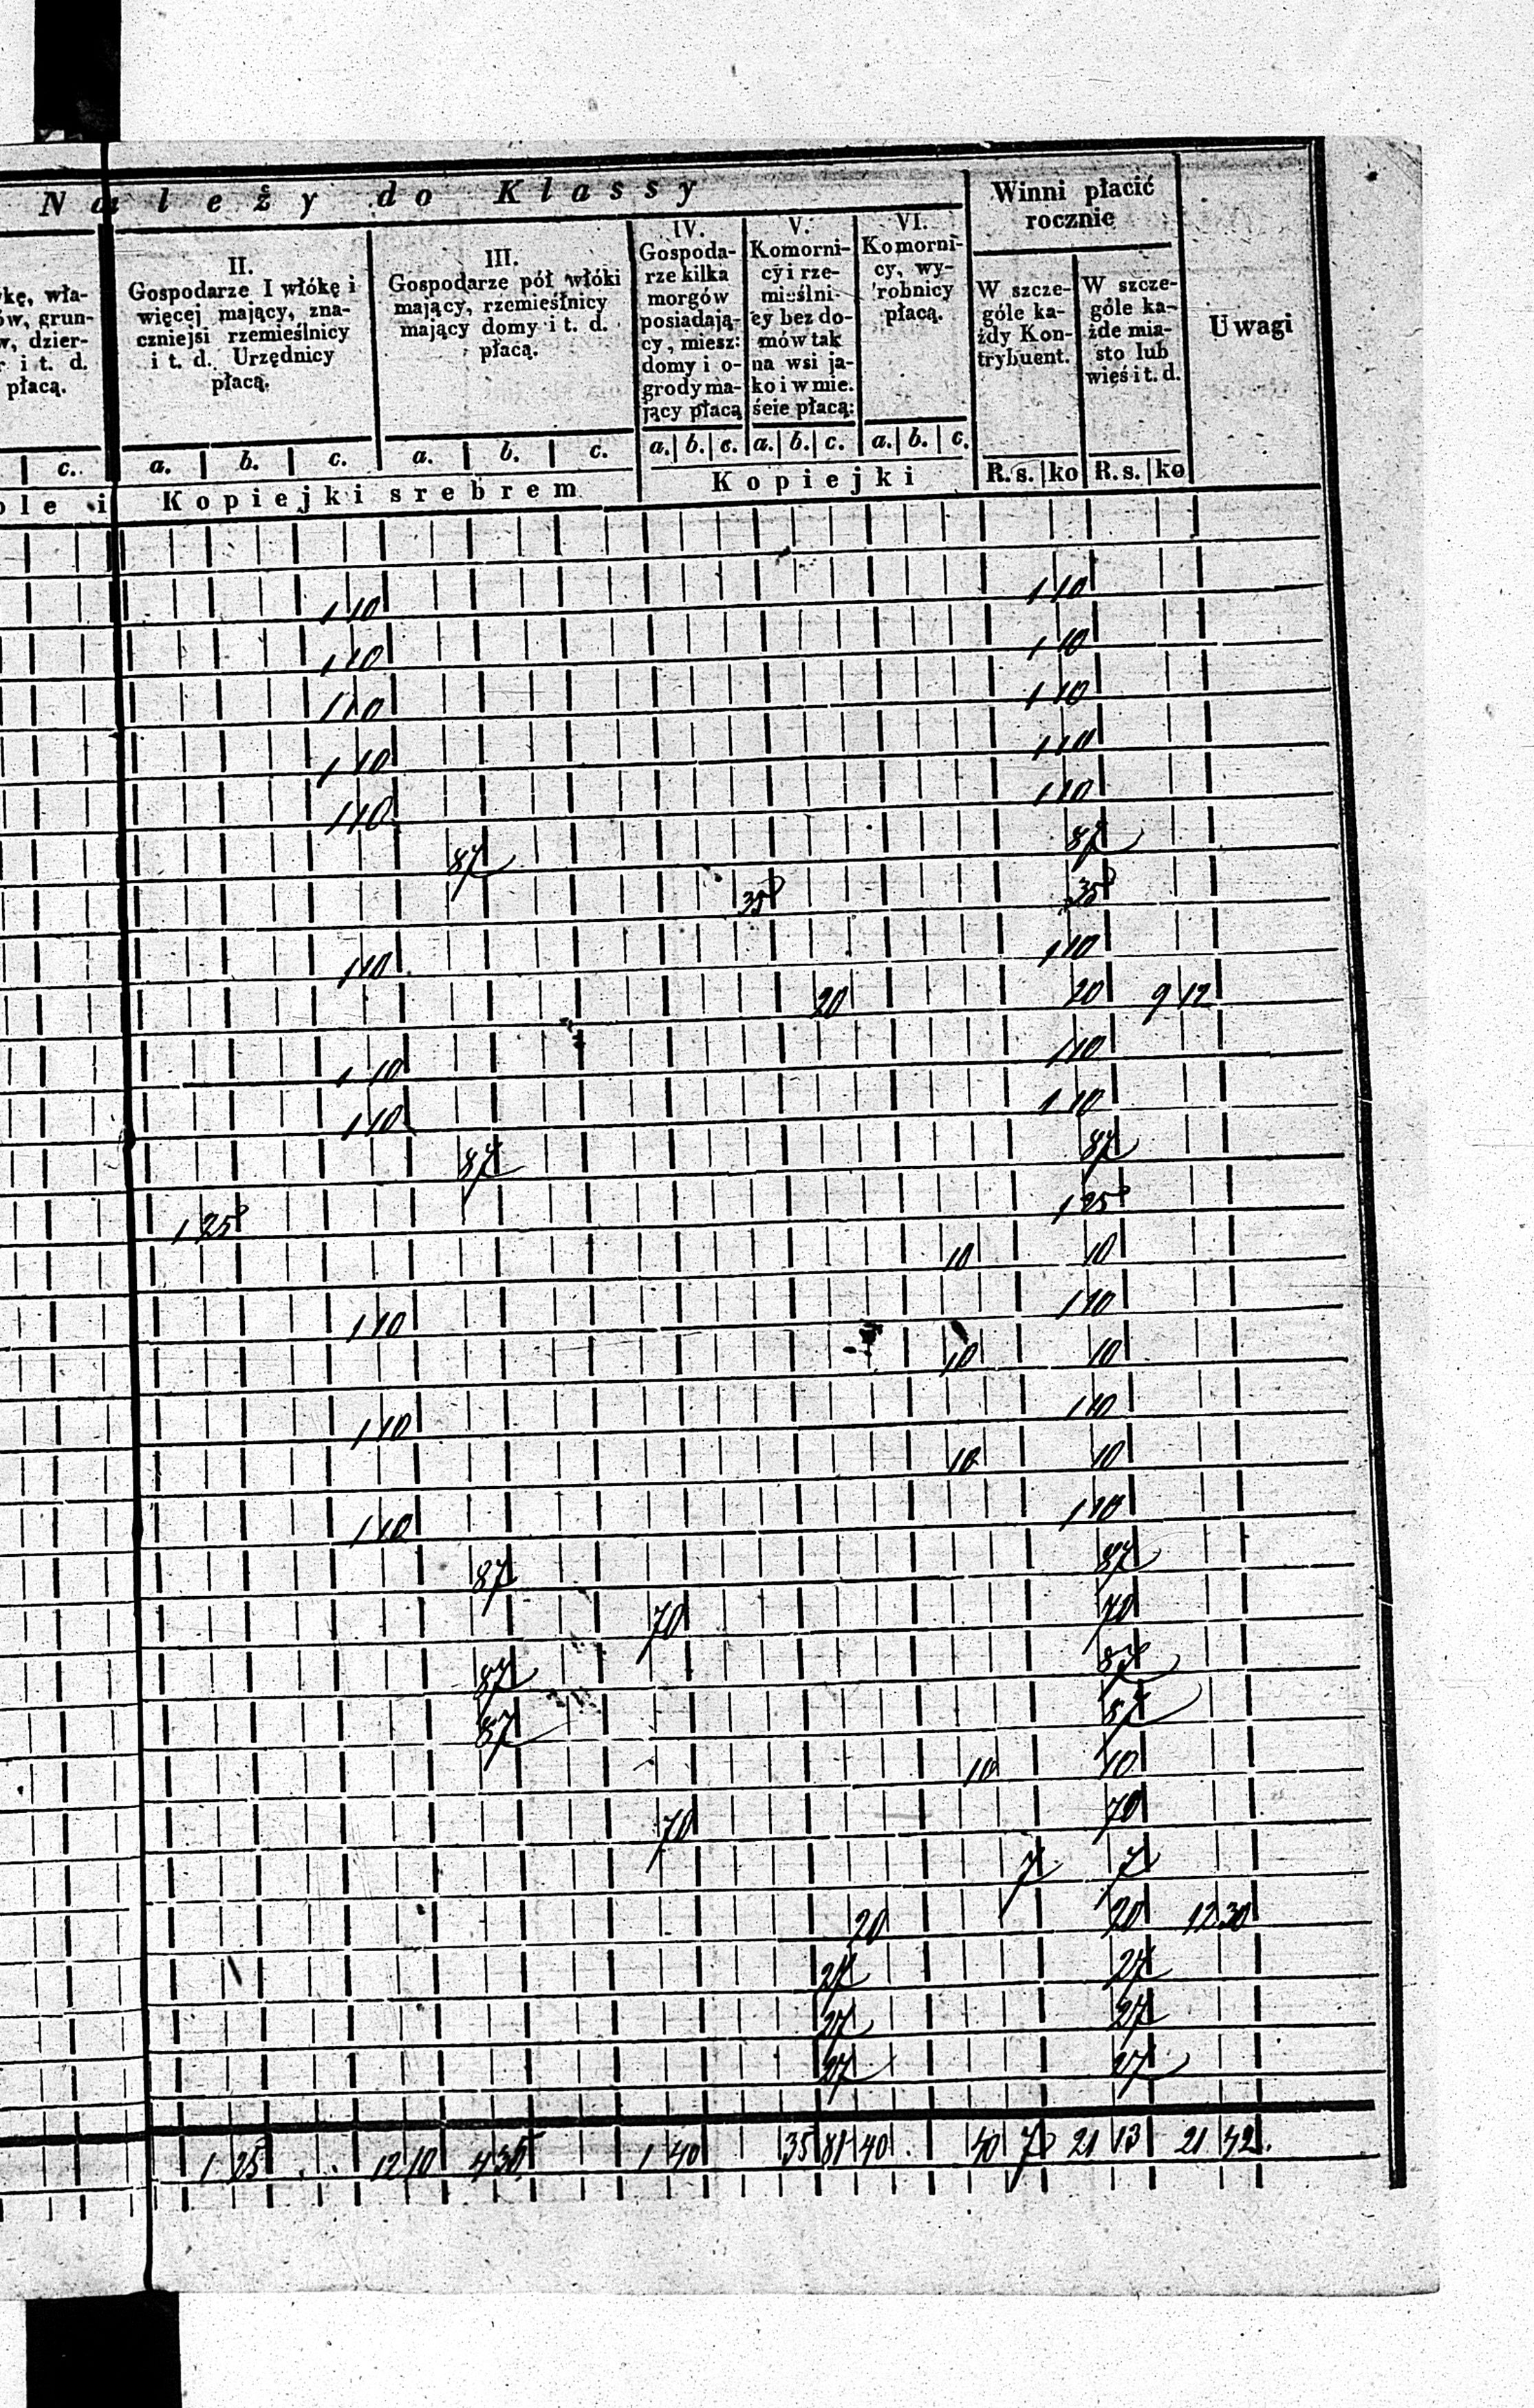 Należy do Klassy
Winni płacić
rocznie
Uwagi
kę, wła-
ów, grun-
w, dzier-
i t. d.
płacą.
II.
Gospodarze I włókę i
więcej mający, zna-
czniejsi rzemieślnicy
i t. d. Urzędnicy
płacą.
III.
Gospodarze pół włóki
mający, rzemieślnicy
mający domy i t. d.
płacą.
IV.
Gospoda-
rze kilka
morgów
posiadają-
cy, miesz:
domy i o-
grody ma-
jący płacą
V.
Komorni-
cy i rze-
mieślni-
cy bez do-
mów tak
na wsi ja-
ko i w mie.
ście płacą:
VI.
Komorni-
cy, wy-
robnicy
płacą.
W szcze-
góle ka-
żdy Kon-
trybuent.
W szcze-
góle ka-
żde mia-
sto lub
wieś i t. d.
c. a. b. c. a. b. c. a. b. c. a. b. c. a. b. c.
R. s. ko R. s. ko
ble i Kopiejki srebrem Kopiejki
1 10 1 10
1 10 1 10
1 10 1 10
1 10 1 10
1 10 1 10
87 87
35 35
1 10 1 10
20 20 9 12
1 10 1 10
1 10 1 10
87 87
1 25 1 25
10 10
1 10 1 10
10 10
1 10 1 10
10 10
1 10 1 10
87 87
70 70
87 87
87 87
10 10
70 70
7 7
20 20 12 30
27 27
27 27
27 27
1 25 12 10 4 35 1 40 35 81 40 40 7 21 13 21 42.